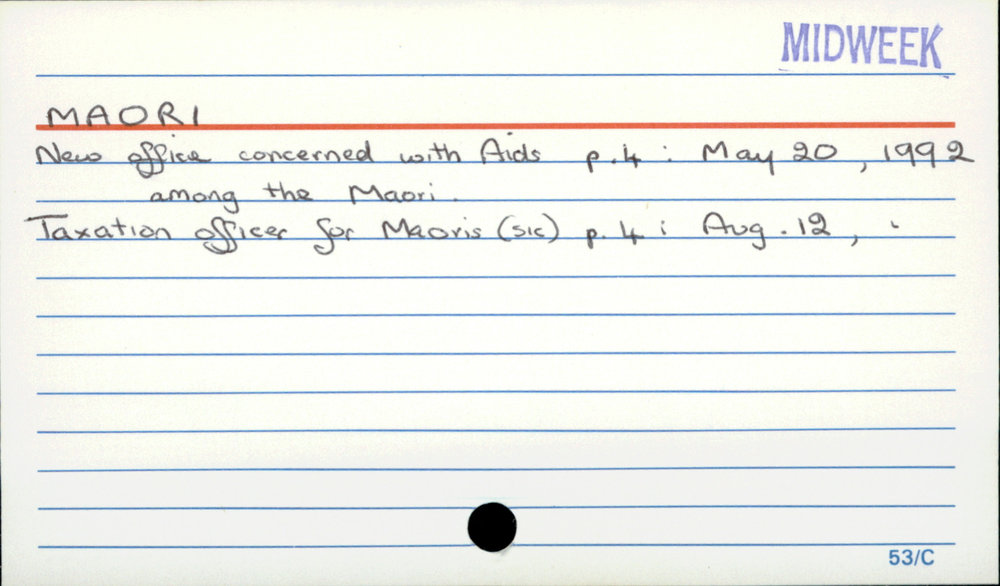 MIDWEEK
MAORI
New office concerned with Aids p.4 : May 20, 1992
among the Maori.
Taxation officer for Maoris (sic) p. 4 : Aug. 12, "
53/C